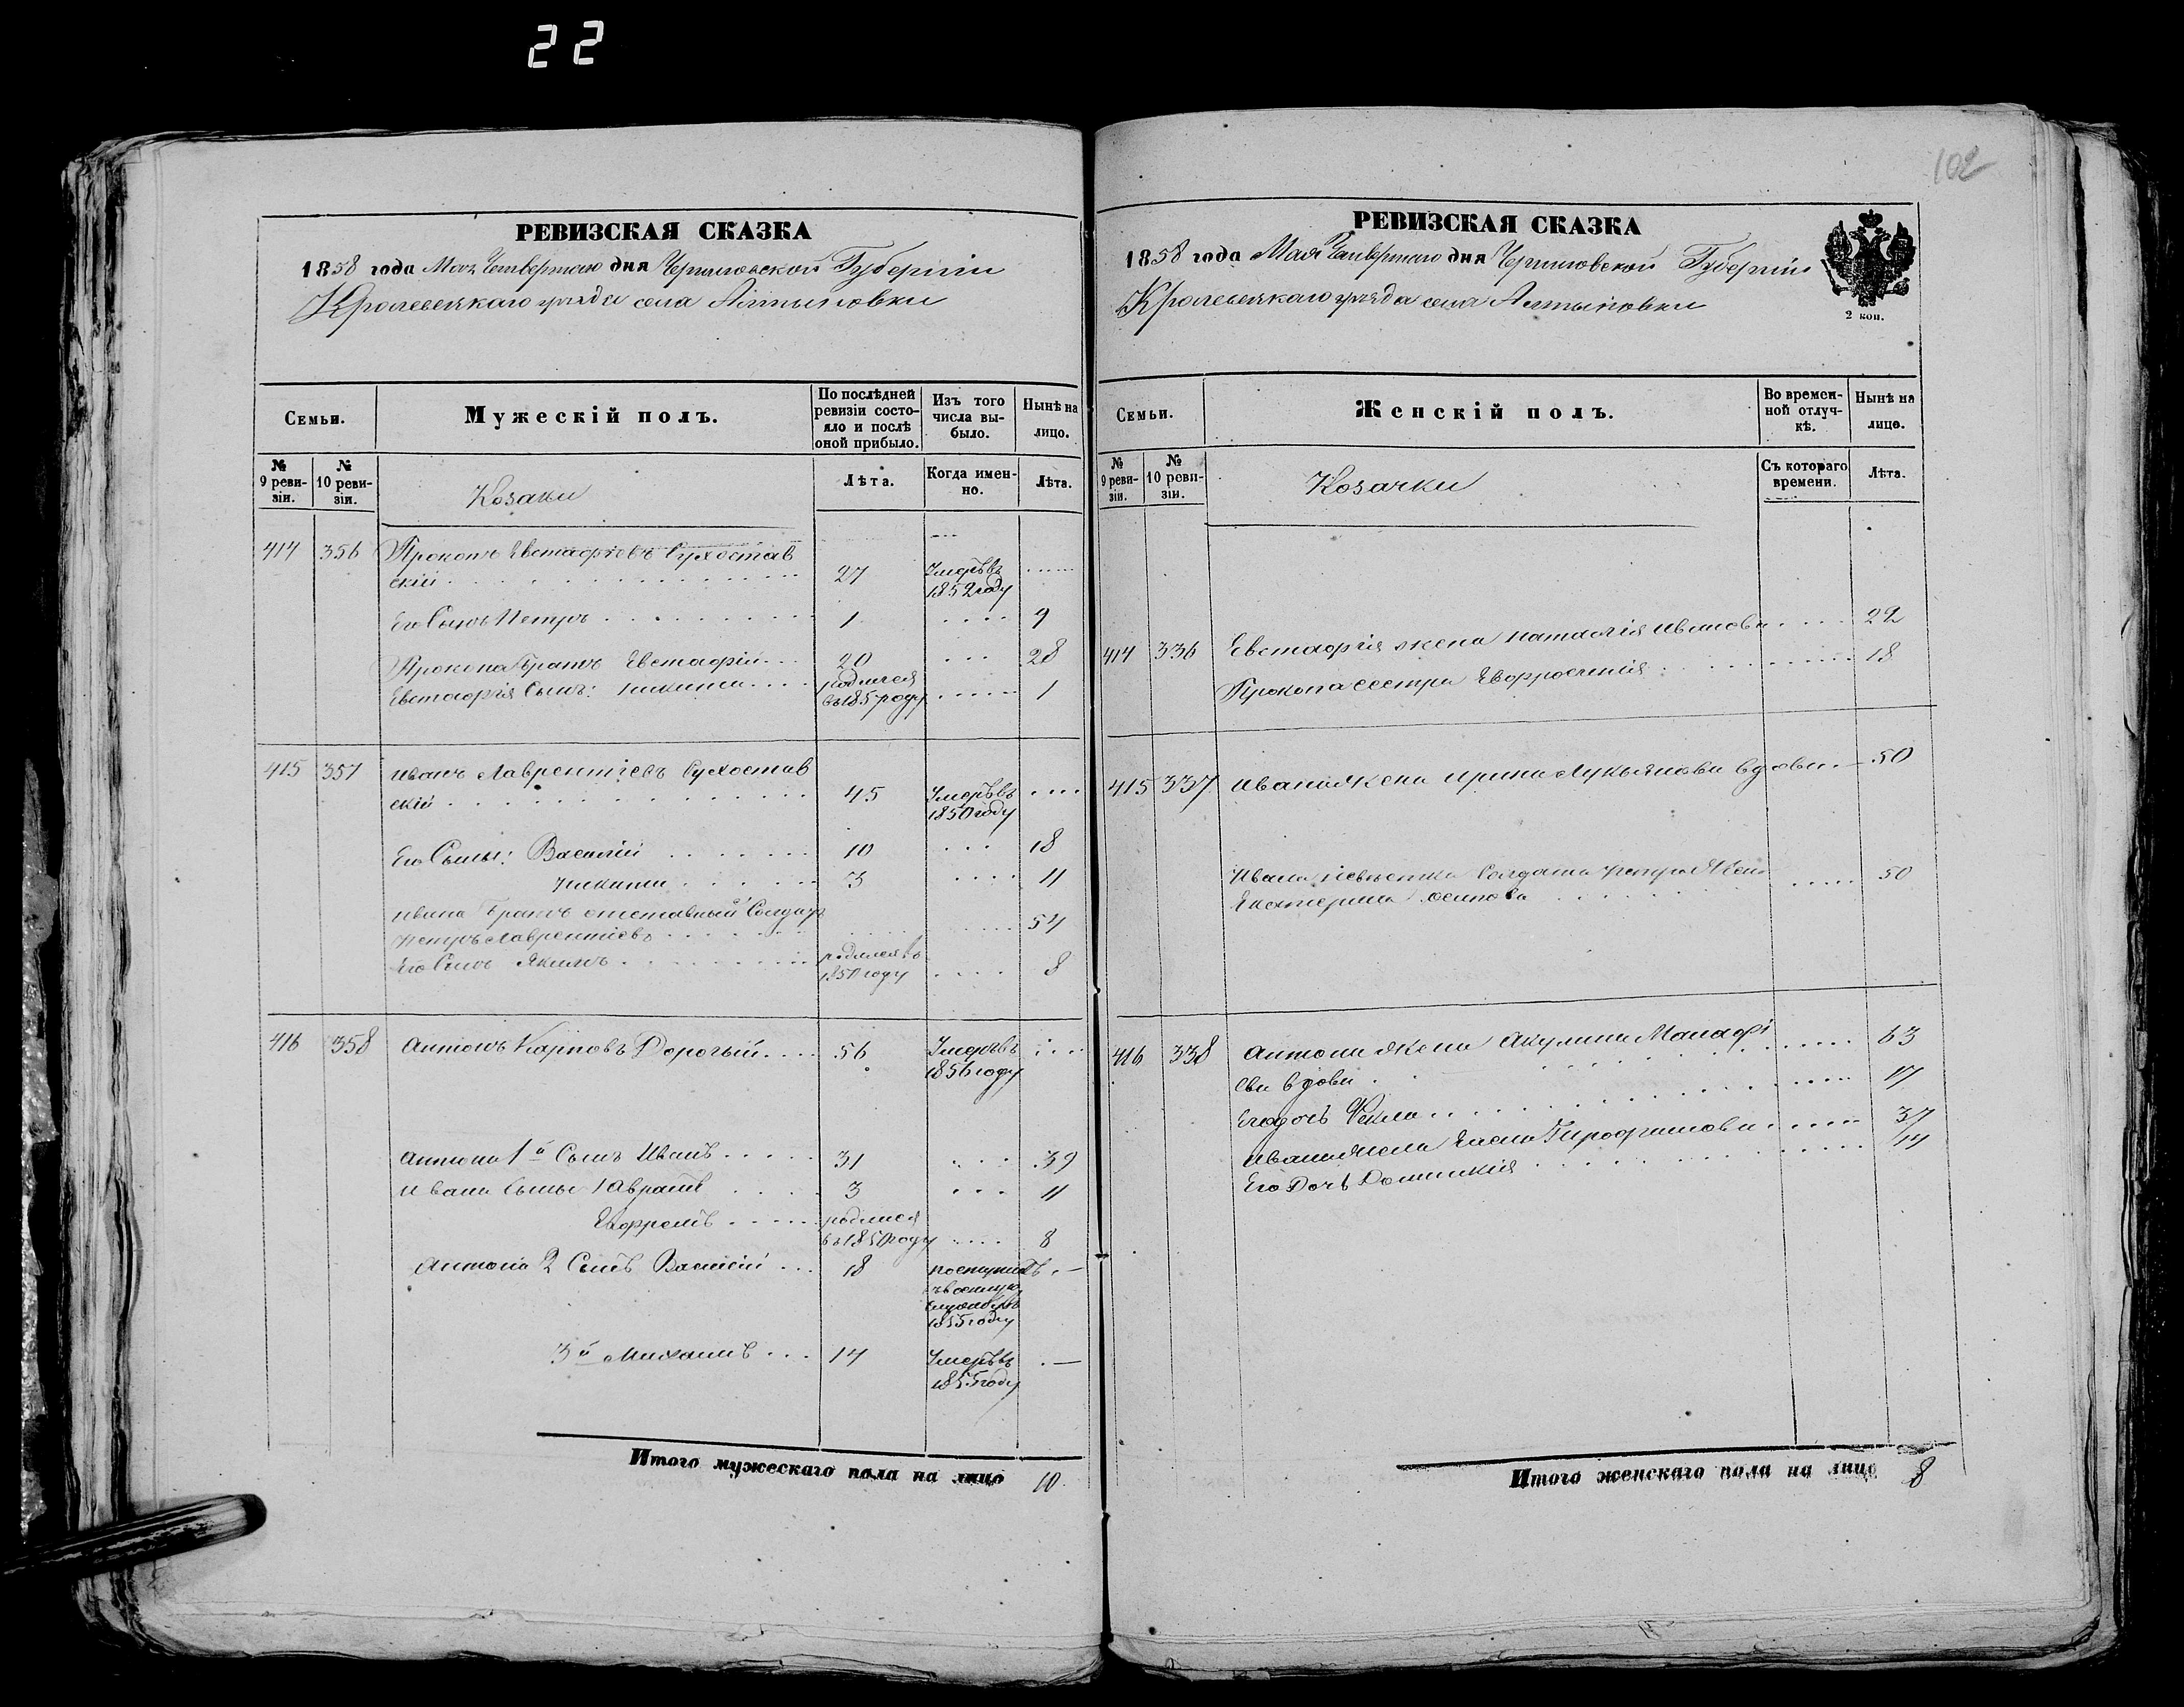 22
102
РЕВИЗСКАЯ СКАЗКА
1858 года Мая Четвертого дня Черниговской Губернии
Кролевецкаго уезда села Алтыновки
Семьи.
Мужескій полъ.
По послѣдней ревизіи состояло и послѣ оной прибыло.
Изъ того числа выбыло.
Нынѣ на лицо.
№ 9 ревизіи.
№ 10 ревизіи.
Козаки
Лѣта.
Когда именно.
Лѣта.
414 356 Прокопъ Евстафіевъ Сухостав
скій 27 Умеръ въ 1852 году
Его Сынъ Петръ 1 9
Прокопа братъ Евстафій 20 28
Евстафія Сынъ: Никита родился въ 1857 году 1
415 357 Иванъ Лаврентіевъ Сухостав
скій 45 Умеръ въ 1850 году
Его Сыны: Василій 10 18
Никита 3 11
Ивана братъ отставный Солдатъ
Петръ Лаврентіевъ 54
Его Сынъ Якимъ родился въ 1850 году 8
416 358 Антонъ Карповъ Дорогый 56 Умеръ въ 1856 году
Антона 1й Сынъ Иванъ 31 39
Ивана Сыны 1 Аврамъ 3 11
Ефремъ родился въ 1850 году 8
Антона 2 Сынъ Василій 18 поступилъ
1855 году
3й Михаилъ 14 Умеръ въ 1855 году
Итого мужескаго пола на лицо 10
РЕВИЗСКАЯ СКАЗКА
1858 года Мая Четвертого дня Черниговской Губернии
Кролевецкаго уезда села Алтыновки
2 коп.
Семьи.
Женскій полъ.
Во временной отлучкѣ.
Нынѣ на лицо.
№ 9 ревизіи.
№ 10 ревизіи.
Козачки
Съ котораго времени.
Лѣта.
414 336 Евстафія жена Наталія Иванова 22
Прокопа сестра Евфросинія 18
415 337 Ивана жена Ирина Лукьянова вдова 50
Ивана невестка Солдата Петра Жена
Екатерина Осипова 50
416 338 Антона жена Акулина Манафі
ева вдова 63
Его дочь Фекла 17
Ивана жена Елена 37
Его Дочь Домникія 14
Итого женскаго пола на лицо 8